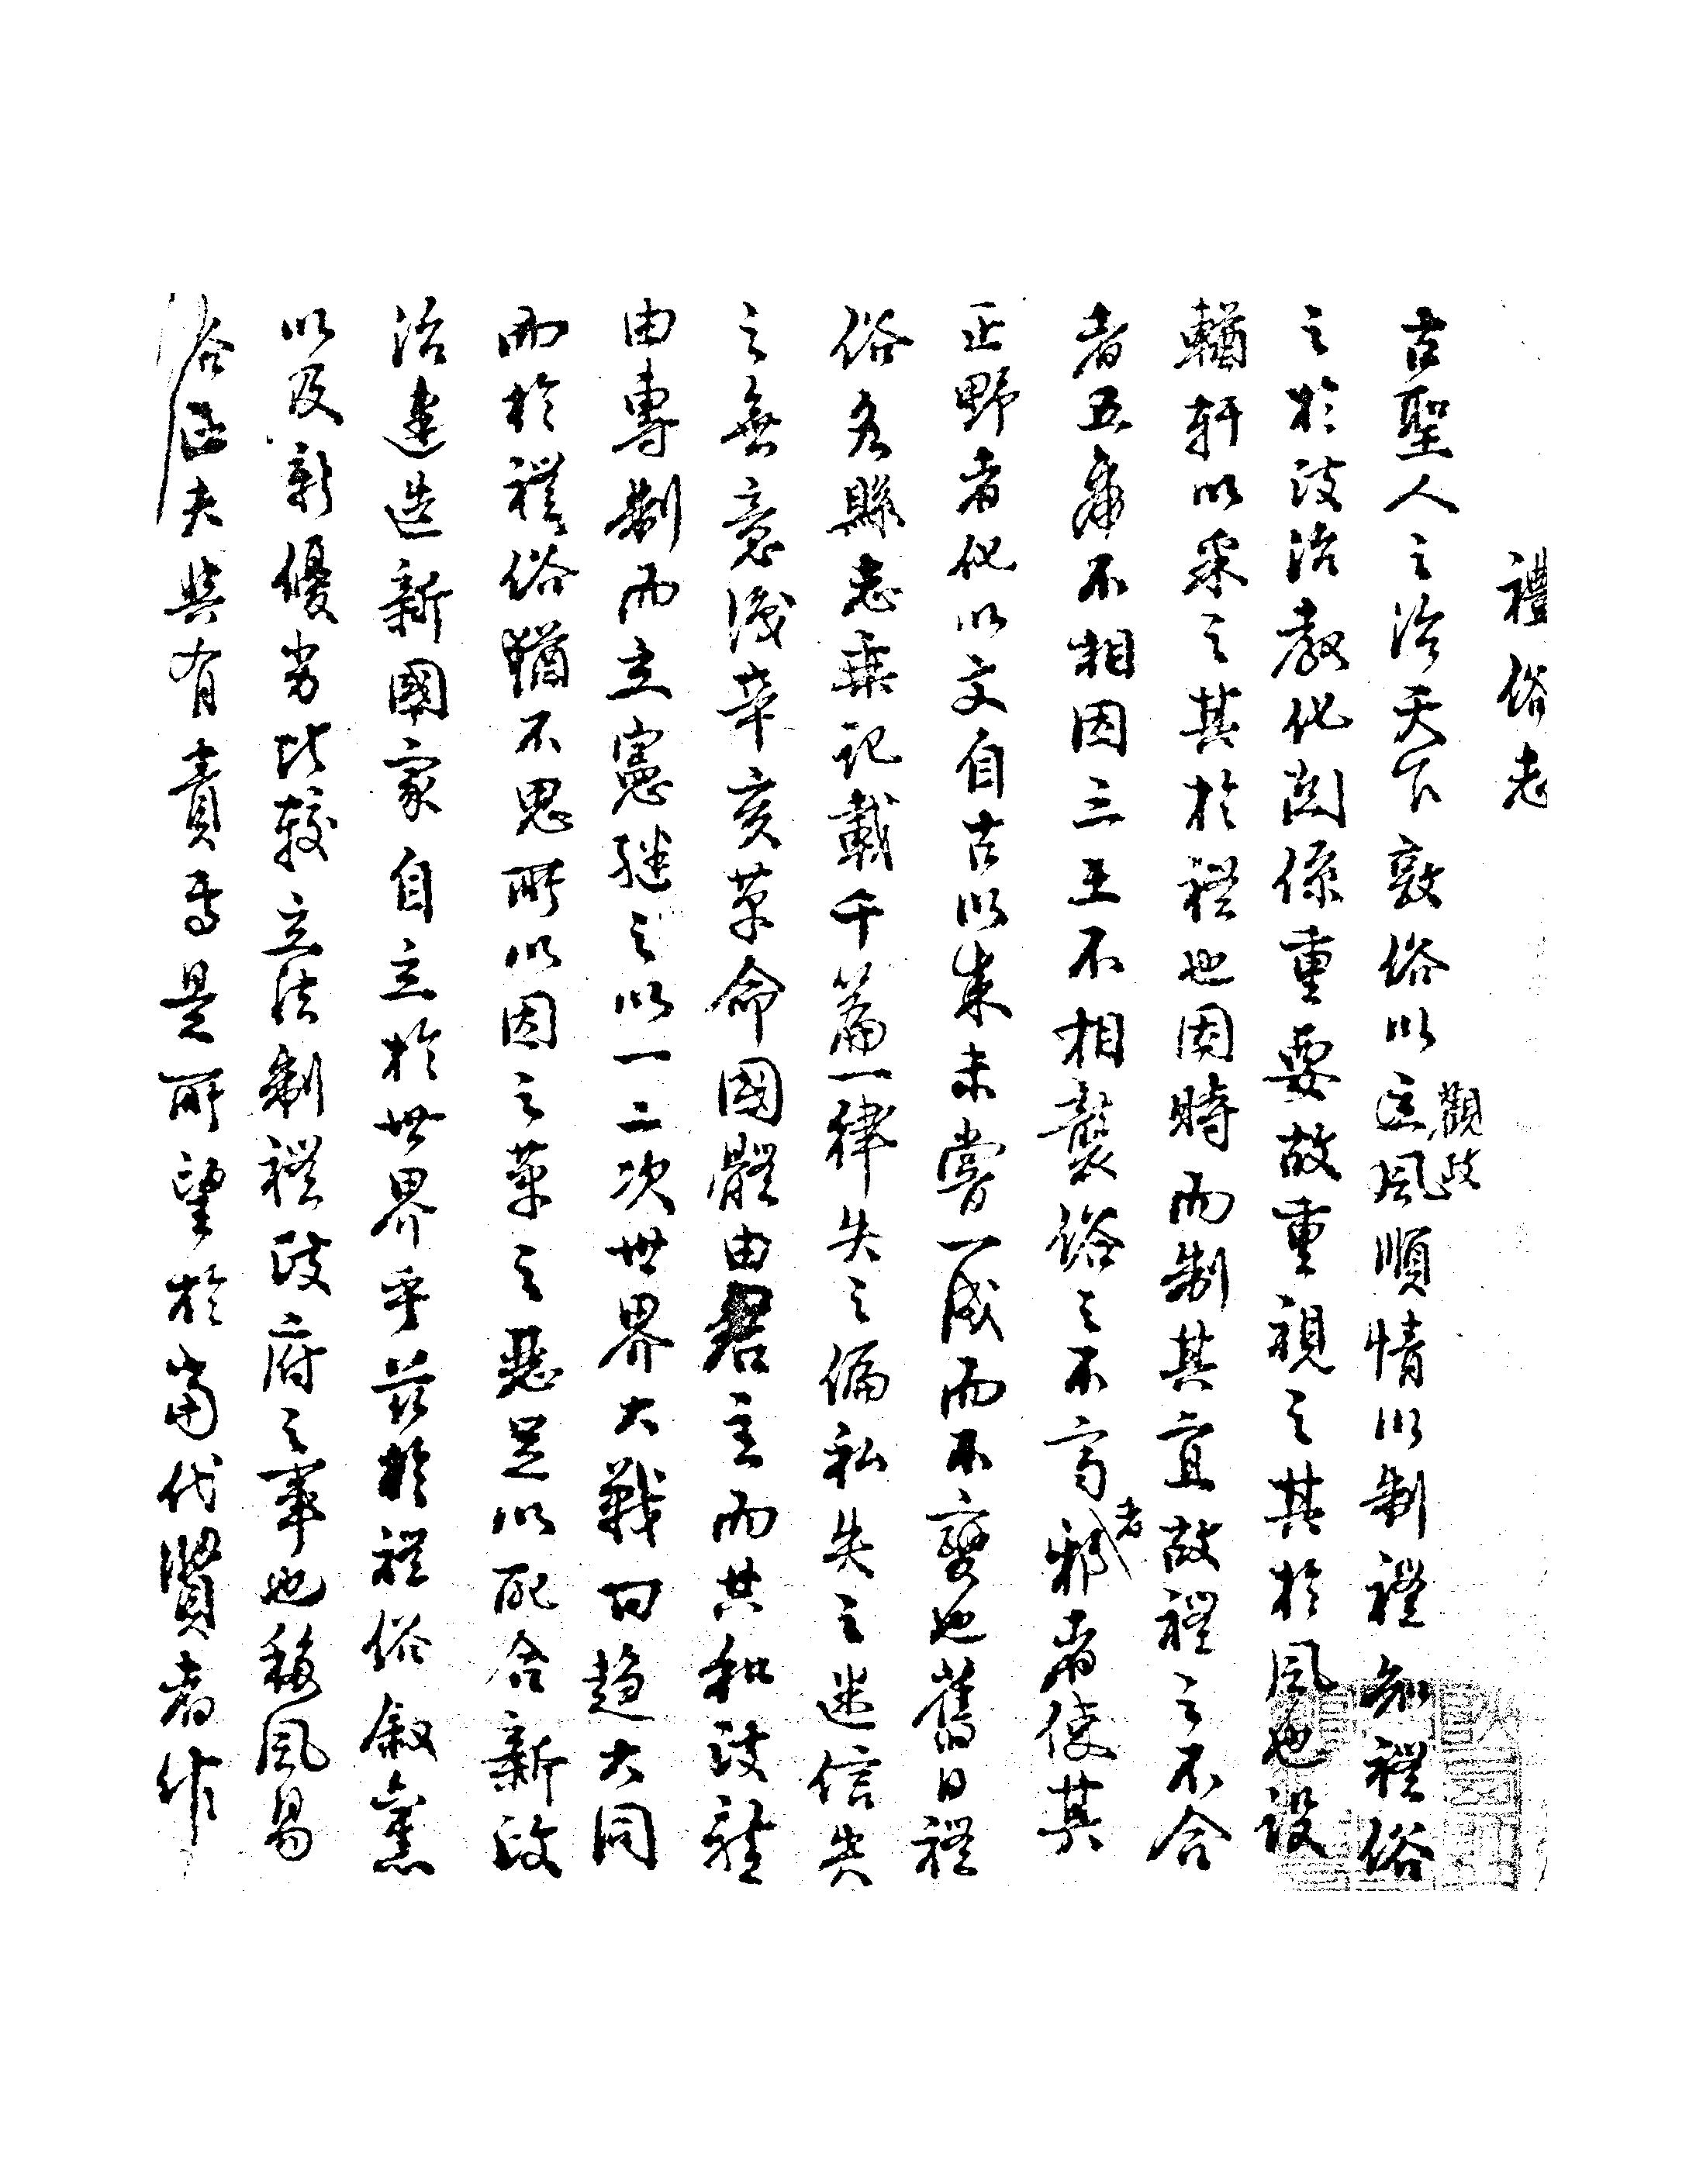 禮俗志
古聖人之治天下敦俗以正風觀政順情以制禮知禮俗
之於政治教化關係重要故重視之其於風也設
輶軒以采之其於禮也因時而制其宜故禮之不合
者五帝不相因三王不相襲俗之不高者邪者使其
正野者化以文自古以來未嘗一成而不變也舊日禮
俗各縣志乘記載千篇一律失之偏私失之迷信失
之無意識辛亥革命國體由君主而共和政體
由專制而立憲繼之以一二次世界大戰日趨大同
而於禮俗猶不思所以因之革之惡足以配合新政
治建造新國家自立於世界乎茲於禮俗叙舊
以及新優劣比較立法制禮政府之事也移風易
俗匹夫與有責焉是所望於當代賢者作